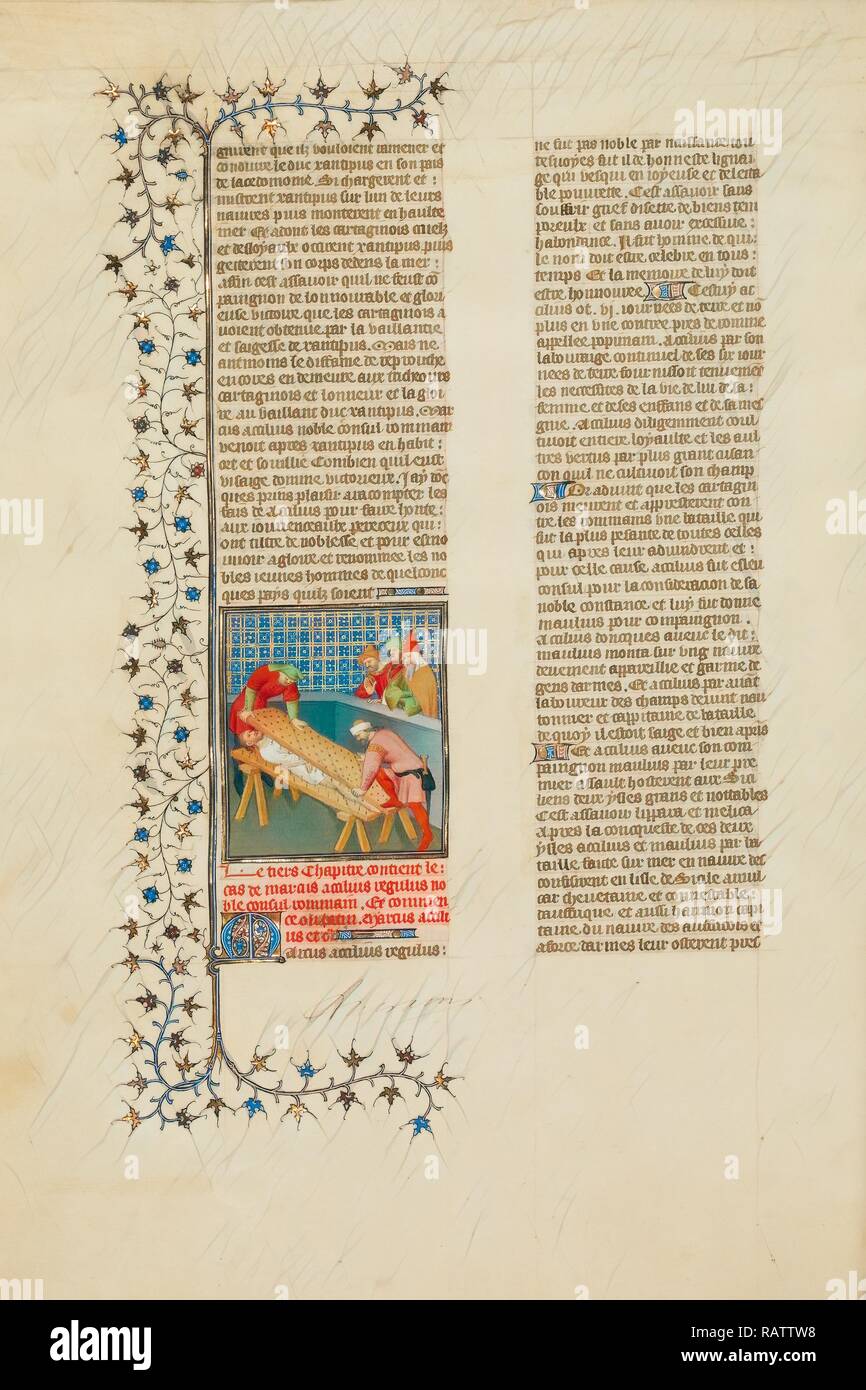 gnirent que ilz vouloient ramener et
conduire le duc xantipus en son pais
de lacedomone. Si chargerent et :
mistrent xantipus sur lun de leurs
navires puis monterent en haulte
mer Et adont les cartaginois cruelz
et desloyaulx occirent xantipus puis
getterent son corps dedens la mer :
affin cest assavoir quil ne feust co
paignon de lonnourable et glori
euse victoire que les cartaginois a
voient obtenue par la vaillance
et saigesse de xantipus. Mais ne
antmoins le diffame de reprouche
encores en demeure aux tricheurs
cartaginois et lonneur et la gloi
re au vaillant duc xantipus. Mar
cus acilius noble consul rommain
venoit apres xantipus en habit :
ort et souillie Combien quil eust
visaige domme victorieux. Jay doc
ques prins plaisir a racompter les
fais de acilius pour faire honte :
aux iouvenceaulx pereceux qui :
ont tiltre de noblesse et pour esmo
uvoir a gloire et renommee les no
bles ieunes hommes de quelconc
ques pays quilz soient
Le tiers Chapitre contient le :
cas de marcus acilius regulus no
ble consul rommain. Et commen
ce ou latin. Marcus acili
us et c
Marcus acilius regulus :
ne fut pas noble par naissance tou
tesvoyes fut il de honneste lignai
ge qui vesqui en ioyeuse et delita
ble povurete. Cest assavoir sans
souffrir grief disette de biens tem
poreulx et sans avoir excessive :
habondance. Il fut homme de qui :
le nom doit estre celebre en tous :
temps Et la memoire de luy doit
estre honnouree. Cestuy ac
cilius ot .vi. iournees de terre et no
plus en une contree pres de romme
appellee popunam. Acilius par son
labouraige continuel de ses six iour
nees de terre fournissoit tenuement
les necessites de la vie de lui de sa :
femme et de ses enffans et de sa mes
gnie. Acilius diligemment coul
tivoit entiere loyaulte et les aul
tres vertus par plus grant cusan
con quil ne cultivoit son champ
Or advint que les cartagin
ois meurent et appresterent con
tre les rommains une bataille qui
fut la plus pesante de toutes celles
qui apres leur advindrent et :
pour celle cause acilius fut esleu
consul pour la consideracion de sa
noble constance et luy fut donne
maulius pour compaignon .
Acilius doncques avecc le dit :
maulius monta sur ung navire
deuement appareillie et garnie de
gens darmes. Et acilius par avant
laboureur des champs devint nau
tonnier et cappitaine de bataille
de quoy il estoit saige et bien apris
Et acilius avec son com
paignon maulius par leur pre
mier assault hosterent aux Sici
liens deux ysles grans et nottables
Cest assavoir lippara et melica
Apres la conqueste de ces deux
ysles acilius et maulius par ba
taille faicte sur mer en navire des
confirent en lisle de Sicile amul
car chevetaine et connestable
dauffrique. et aussi hannon capi
taine du navire des auffricois et
a force darmes leur osterent pres
alamy
alamy
alamy
Image ID: RATTW8
www.alamy.com